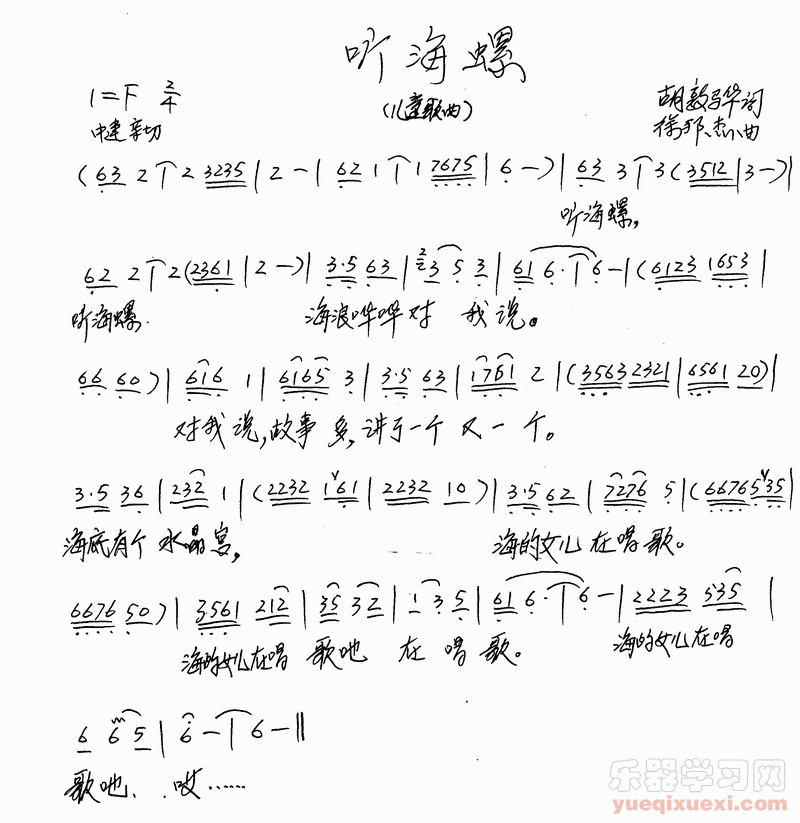 听海螺
(儿童歌曲)
1=F 2/4
中速 亲切
胡敦骅词
徐邦杰曲
(63 2 | 2 3235 | 2 — | 62 1 | 1 7675 | 6 —) | 63 3 | 3 (3512 | 3 —) |
听海螺,
62 2 | 2 (2361 | 2 —) | 3·5 63 | 3 5 3 | 61 6· | 6 — | (6123 1653 |
听海螺. 海浪哗哗对 我 说。
66 60) | 616 1 | 6165 3 | 3·5 63 | 1761 2 | (3563 2321 | 6561 20) |
对我 说,故事 多,讲了一个 又 一 个。
3·5 36 | 232 1 | (2232 161 | 2232 10) | 3·5 62 | 7276 5 | (66765 35 |
海底有个 水晶宫, 海的女儿 在唱 歌。
6676 50) | 3561 212 | 35 32 | 1 3 5 | 61 6· | 6 — | 2223 535 |
海的女儿在唱 歌吔 在 唱 歌。 海的女儿在唱
6 65 | 6 — | 6 — ‖
歌吔、哎……
乐器学习网
yueqixuexi.com